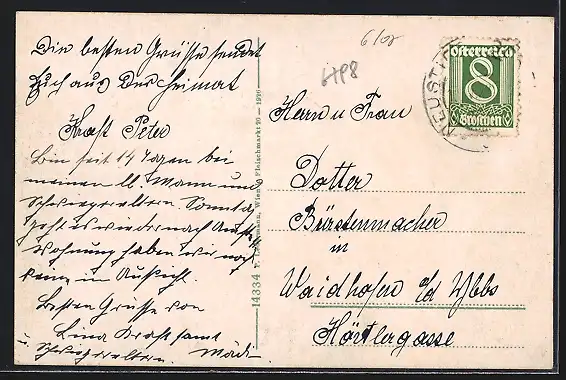 Die besten Grüsse sendet
Euch aus der Heimat
Kraft Peter
Bin seit 14 Tagen bei
meinen ll. Mann und
Schwiegereltern. Sonntag
geht es wieder nach
Wohnung haben wir noch
keine in Aussicht.
Besten Grüsse von
Lina Kraft samt
u. Schwiegereltern. Mädi
14334 Wien I, Fleischmarkt 20 - 1926
6/02
H98
Österreich
8
Groschen
NEUST
Herrn u Frau
Dotter
Bürstenmacher
in
Waidhofen a/d Ybbs
Hörtlergasse